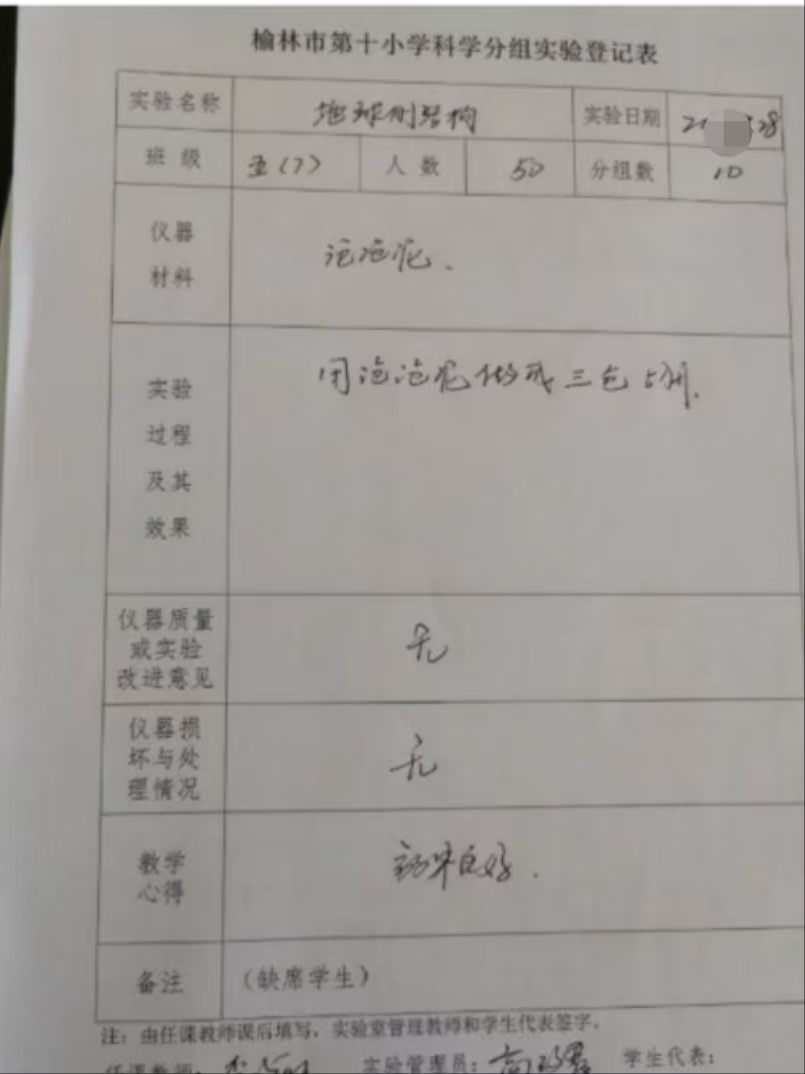 榆林市第十小学科学分组实验登记表
实验名称 地球的结构 实验日期
班级 五(7) 人数 50 分组数 10
仪器
材料
泡泡泥.
用泡泡泥做成三色
实验
过程
及其
效果
仪器质量
或实验
改进意见
无
仪器损
坏与处
理情况
无
教学
心得
效果良好.
备注 (缺席学生)
注:由任课教师课后填写,实验室管理教师和学生代表签字.
任课教师: 实验管理员: 学生代表: